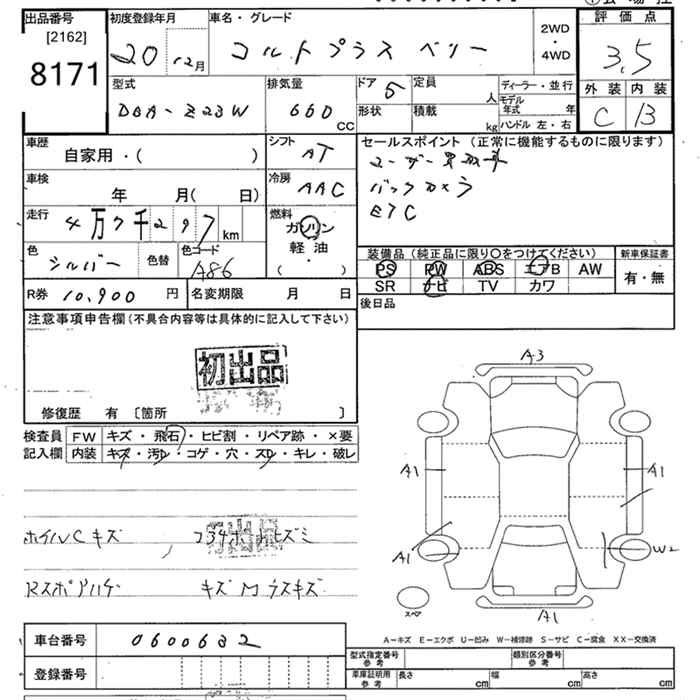 出品番号
[2162]
8171
初度登録年月
20 12月
車名・グレード
コルトプラス ベリー
2WD
・
4WD
評価点
3.5
外装 内装
C B
型式
DBA-Z23W
排気量
660 CC
ドア 5
形状
定員 人
積載 kg
ディーラー・並行
モデル年式 年
ハンドル 左・右
車歴
自家用・( )
シフト
AT
車検
年 月( 日)
冷房
AAC
走行
4万7千297 km
燃料
ガソリン
軽油
( ・ )
色
シルバー
色替
色コード
A86
R券 10,900 円
名変期限 月 日
セールスポイント (正常に機能するものに限ります)
ユーザー買取車
バックカメラ
ETC
装備品 (純正品に限り〇をつけてください)
PS PW ABS エアB AW
SR ナビ TV カワ
新車保証書
有・無
後日品
注意事項申告欄 (不具合内容等は具体的に記入して下さい)
初出品
修復歴 有 〔箇所 〕
検査員記入欄
FW キズ・飛石・ヒビ割・リペア跡・×要
内装 キズ・汚レ・コゲ・穴・スレ・キレ・破レ
ホイルCキズ
初出品
キズ
A3
A1
A1
A1
W2
A1
スペア
A-キズ E-エクボ U-凹み W-補修跡 S-サビ C-腐食 XX-交換済
車台番号 0600632
登録番号
型式指定番号 参考
類別区分番号 参考
車庫証明用 参考
長さ cm 幅 cm 高さ cm